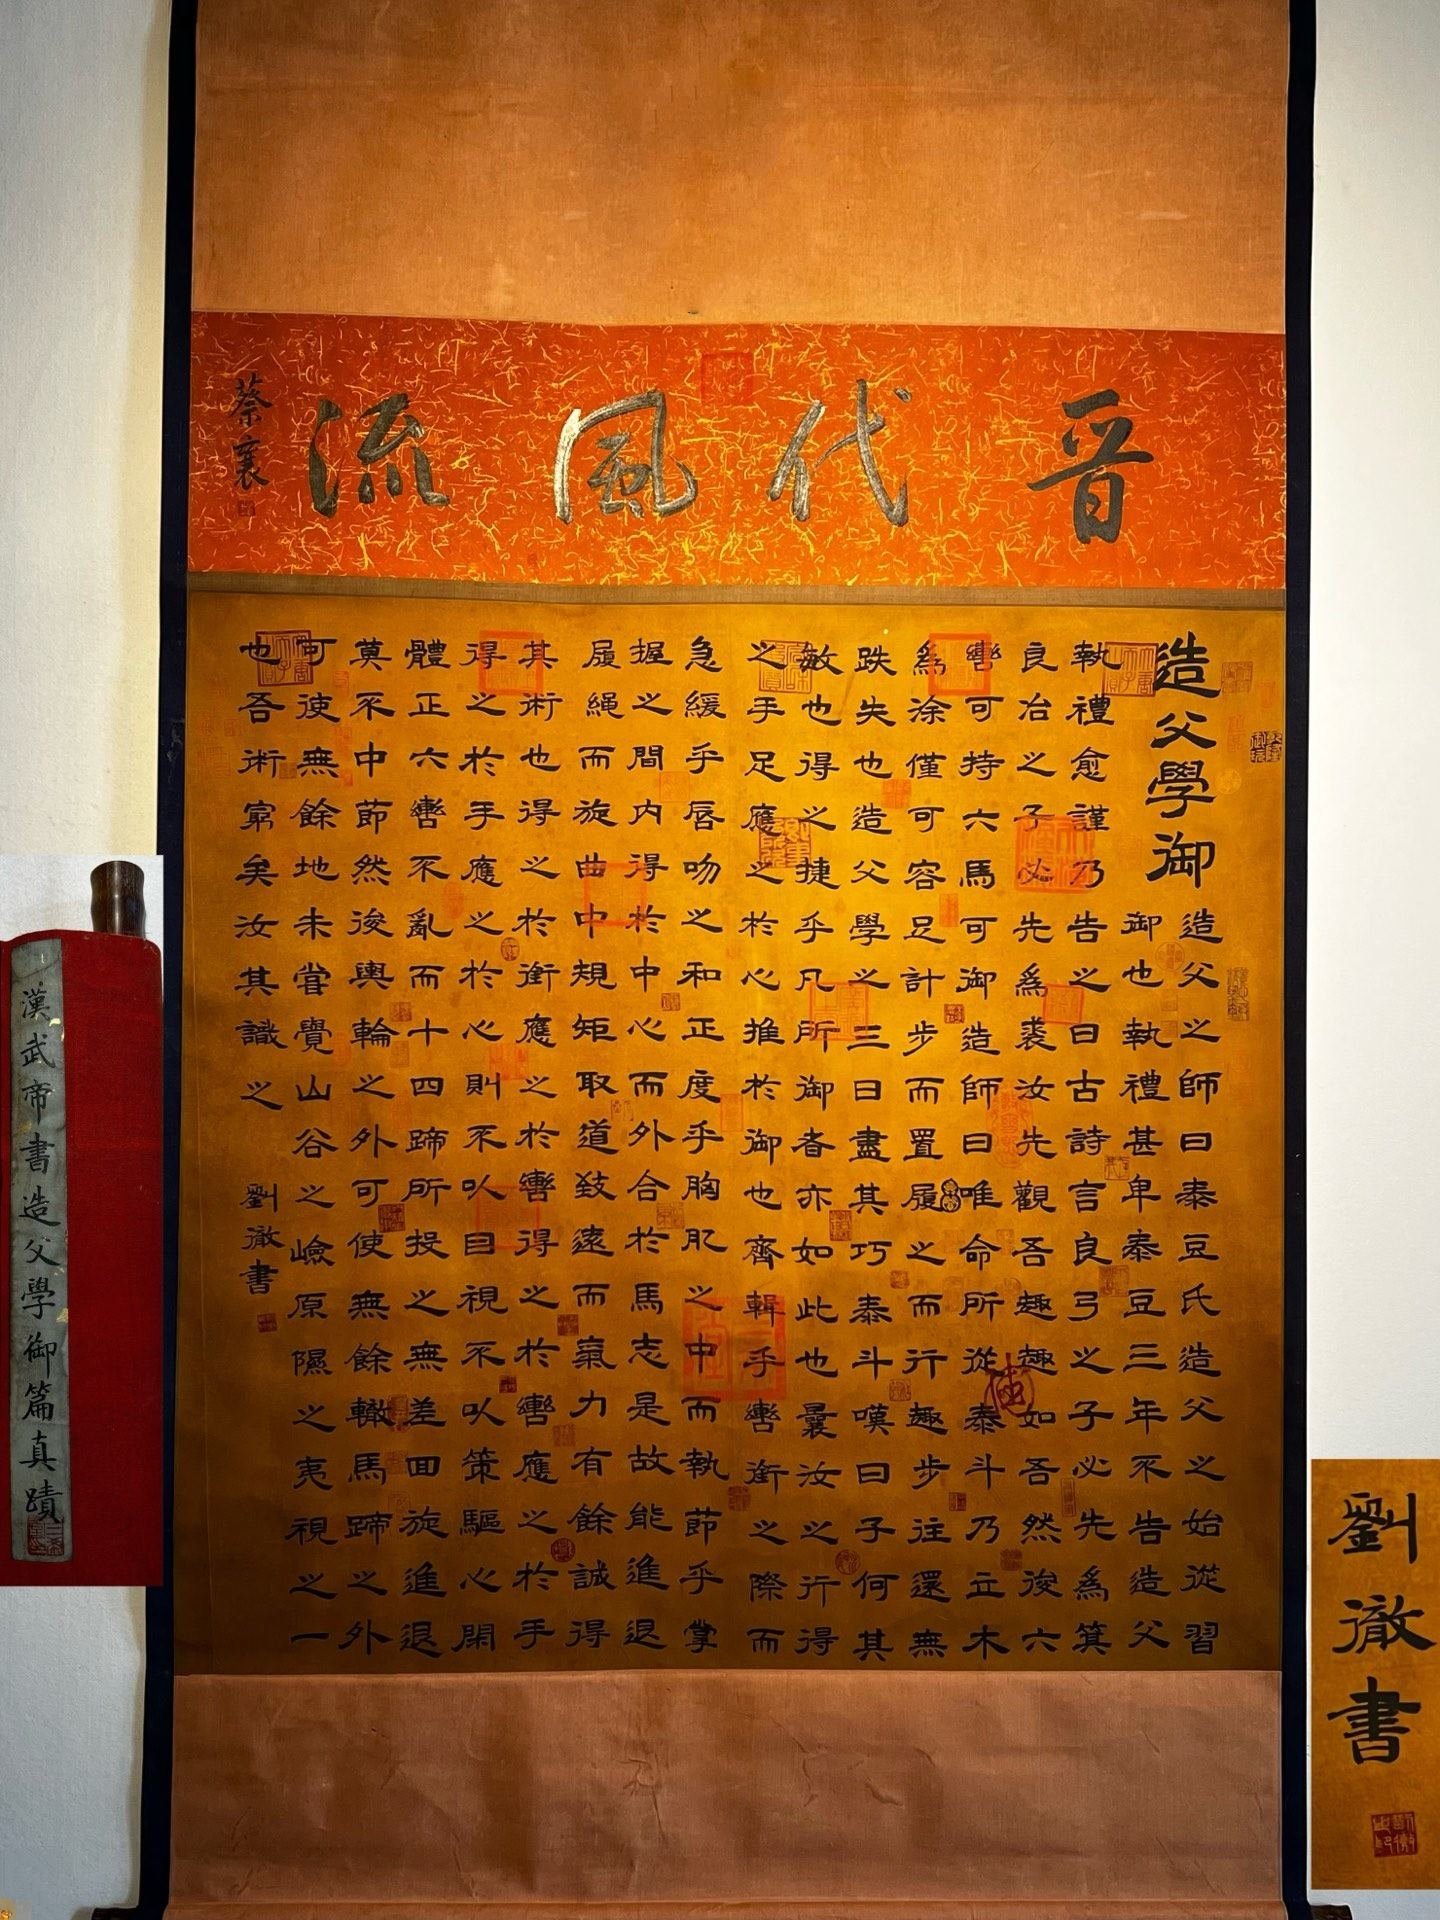 晋代風流
蔡襄
造父學御
造父之師曰泰豆氏造父之始從習
御也執禮甚卑泰豆三年不告造父
執禮愈謹乃告之曰古詩言良弓之子必先為箕
良冶之子必先爲裘汝先觀吾趣趣如吾然後六
轡可持六馬可御造師曰唯命所從泰斗乃立木
爲涂僅可容足計步而置履之而行趣步往還無
跌失也造父學之三日盡其巧泰斗嘆曰子何其
敏也得之捷乎凡所御者亦如此也曩汝之行得
之手足應之於心推於御也齊輯乎轡銜之際而
急緩乎唇吻之和正度乎胸肊之中而執節乎掌
握之間内得於中心而外合於馬志是故能進退
履繩而旋曲中規矩取道致遠而氣力有餘誠得
其術也得之於銜應之於轡得之於轡應之於手
得之於手應之於心則不以目視不以策驅心閑
體正六轡不亂而十四蹄所投之無差回旋進退
莫不中節然後輿輪之外可使無餘轍馬蹄之外
可使無餘地未嘗覺山谷之嶮原隰之夷視之一
也吾術窮矣汝其識之
劉徹書
漢武帝書造父學御篇真蹟
劉徹書